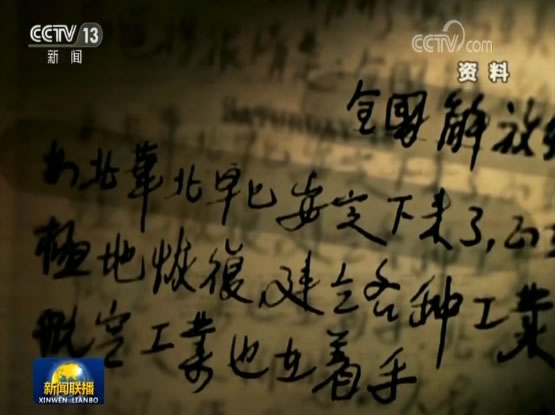 CCTV 13
新闻
CCTV.com
资料
SATURDAY
全國解放
东北華北早已安定下来了,正
極地恢復,建立各种工業
航空工業也在着手
新闻联播
XINWEN LIANBO